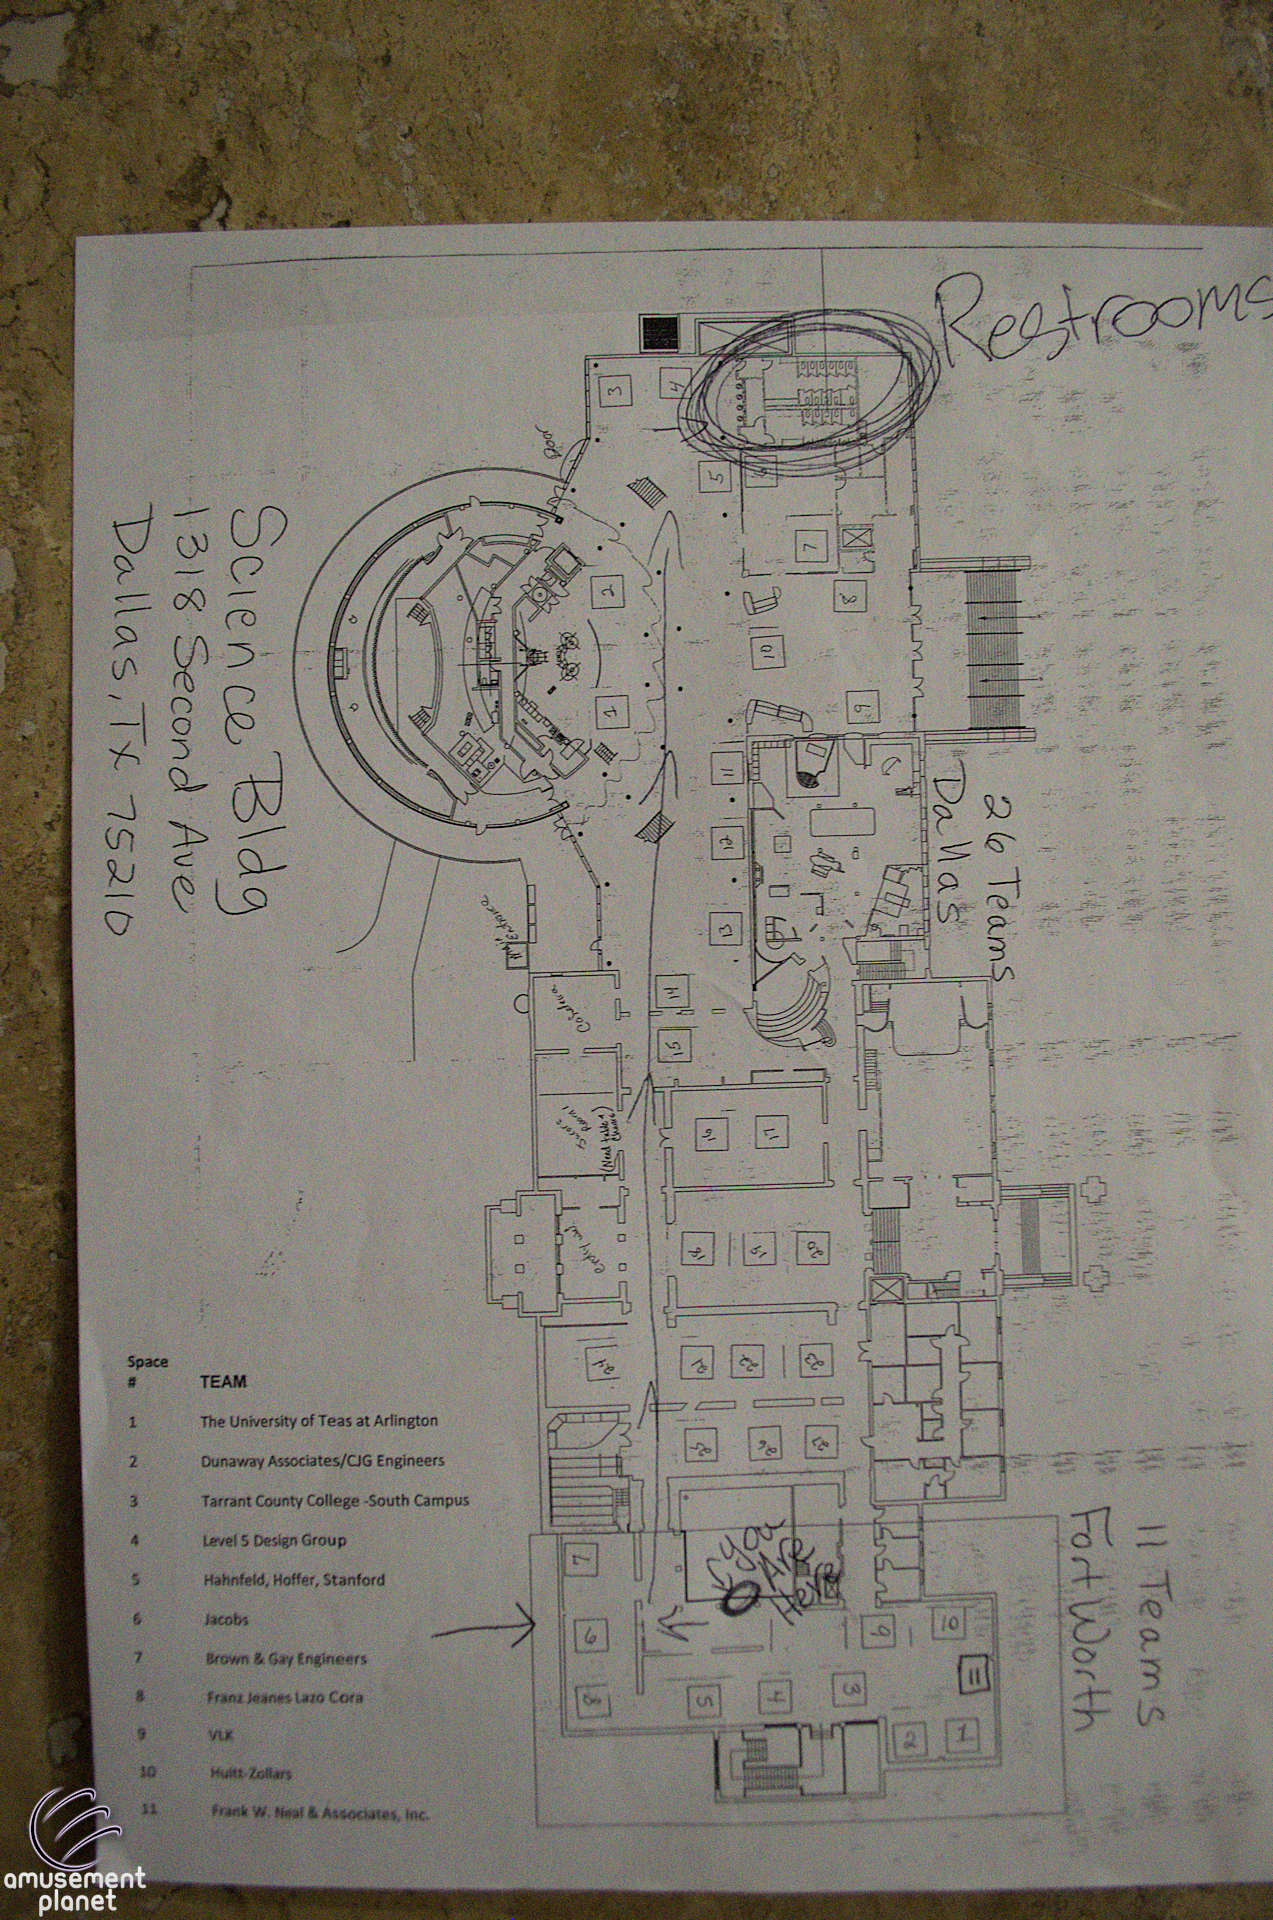 Restrooms
3
4
Door
5
6
7
2
8
10
9
1
11
12
13
26 Teams
Dallas
Science Bldg
1318 Second Ave
Dallas, TX 75210
Entrance
14
15
16
17
Score
Room!
(Need table &
Chairs)
18
19
20
24
21
22
23
25
26
27
You
Are
Here
11 Teams
Fort Worth
7
6
8
5
4
3
9
10
11
2
1
Space
# TEAM
1 The University of Teas at Arlington
2 Dunaway Associates/CJG Engineers
3 Tarrant County College -South Campus
4 Level 5 Design Group
5 Hahnfeld, Hoffer, Stanford
6 Jacobs
7 Brown & Gay Engineers
8 Franz Jeanes Lazo Cora
9 VLK
10 Huitt-Zollars
11 Frank W. Neal & Associates, Inc.
amusement
planet